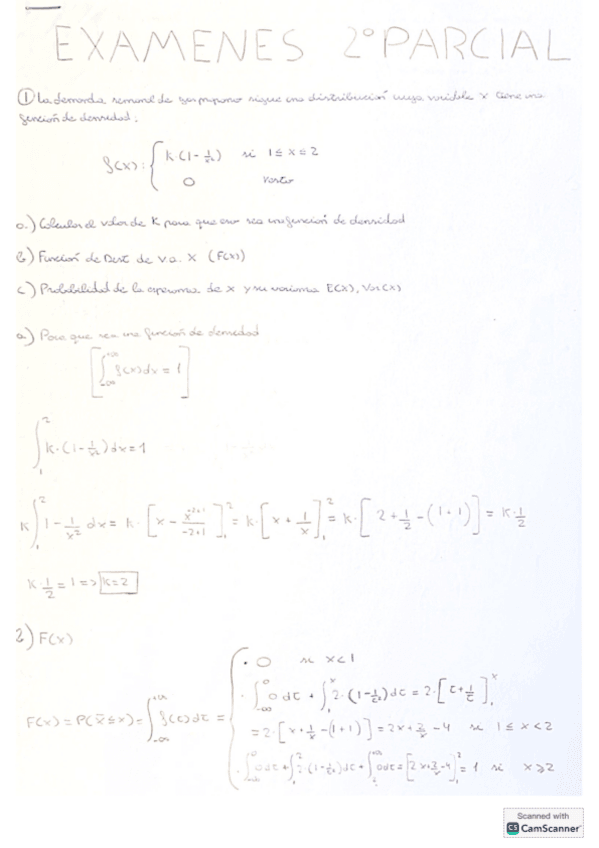 EXAMENES 2º PARCIAL
① La demanda semanal de propano sigue una distribución cuya variable x tiene una
función de densidad:
f(x): { k·(1-1/x²) si 1≤x≤2
0
a.) Calcular el valor de K para que eso sea una función de densidad
b.) Función de Dist de v.a. X (F(x))
c.) Probabilidad de la esperanza de x y su varianza E(x), Var(x)
a.) Para que sea una función de densidad
[∫_{-∞}^{+∞} f(x)dx = 1]
∫_1^2 k·(1-1/x²)dx=1
k∫_1^2 1-1/x² dx = k·[x - x^{-2+1}/-2+1]_1^2 = k·[x+1/x]_1^2 = k·[2+1/2-(1+1)] = k·1/2
k·1/2=1=>k=2
2) F(x)
· 0 si x<1
F(x)=P(X≤x)=∫_{-∞}^{+∞} f(t)dt = { · ∫_{-∞}^0 0dt + ∫_1^x 2·(1-1/t²)dt = 2·[t+1/t]_1^x
=2·[x+1/x-(1+1)]=2x+2/x-4 si 1≤x<2
· ∫_{-∞}^0 0dt+∫_1^2 2·(1-1/t²)dt+∫_2^{+∞} 0dt=[2x+2/x-4]_1^2=1 si x≥2
Scanned with
CS CamScanner